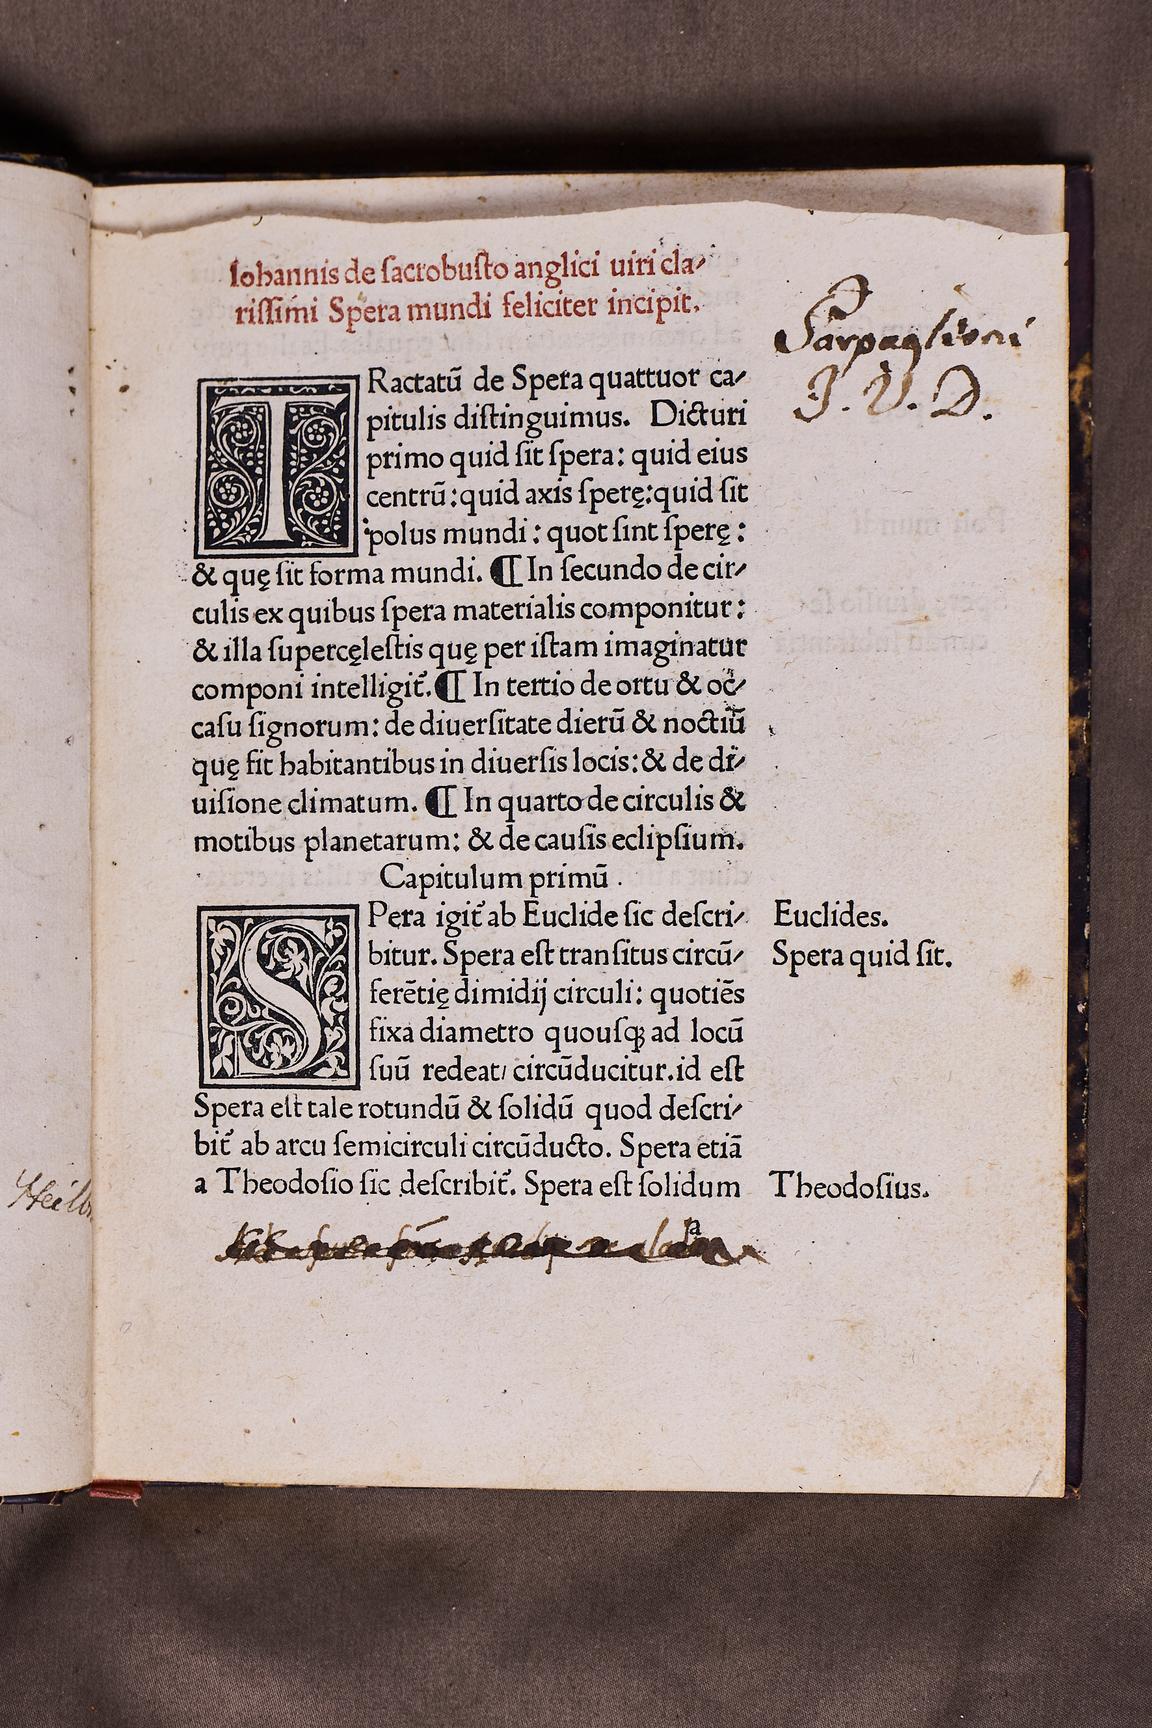 Iohannis de sacrobusto anglici uiri cla⸗
rissimi Spera mundi feliciter incipit.
Sarpaglioni
J. V. D.
TRactatū de Spera quattuor ca⸗
pitulis distinguimus. Dicturi
primo quid sit spera: quid eius
centrū: quid axis sperę: quid sit
polus mundi: quot sint sperę:
& quę sit forma mundi. ¶ In secundo de cir⸗
culis ex quibus spera materialis componitur:
& illa supercęlestis quę per istam imaginatur
componi intelligit̃. ¶ In tertio de ortu & oc⸗
casu signorum: de diuersitate dierū & noctiū
quę fit habitantibus in diuersis locis: & de di⸗
uisione climatum. ¶ In quarto de circulis &
motibus planetarum: & de causis eclipsium.
Capitulum primū.
SPera igit̃ ab Euclide sic descri⸗ Euclides.
bitur. Spera est transitus circū⸗ Spera quid sit.
ferētię dimidij circuli: quotiēs
fixa diametro quousqꝫ ad locū
suū redeat/ circūducitur. id est
Spera est tale rotundū & solidū quod descri⸗
bit̃ ab arcu semicirculi circūducto. Spera etiā
a Theodosio sic describit̃. Spera est solidum Theodosius.
a